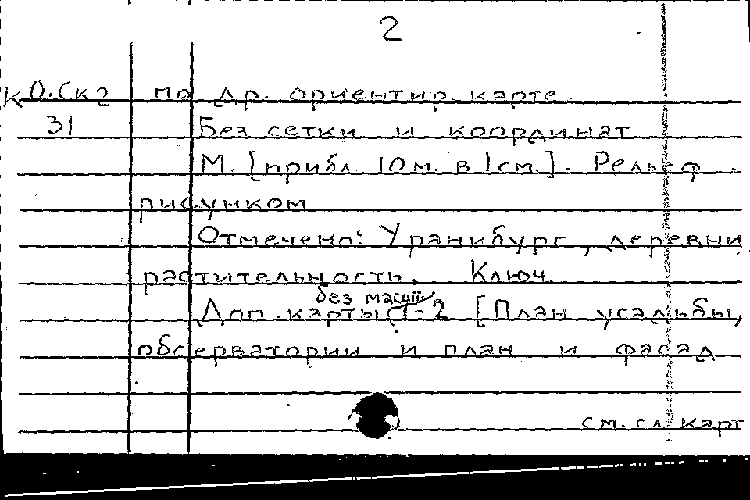 2
К О.Ск2 по др. ориентир. карте
31 Без сетки и координат
М. [прибл. 10м. в 1см.]. Рельеф -
рисунком
Отмечено: Уранибург, деревни,
растительность. Ключ.
без масшт.
Доп. карты: 1-2 [План усадьбы,
обсерватории и план и фасад
см. сл. карт